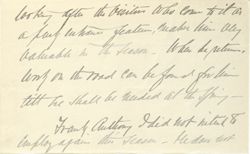 looking after the Visitors who come to it as
a feature, makes him very
valuable in the season. When he returns,
work on the road can be found for him
till he shall be needed at the Spring
Frank Anthony I did not intend to
employ again this Season. He does not